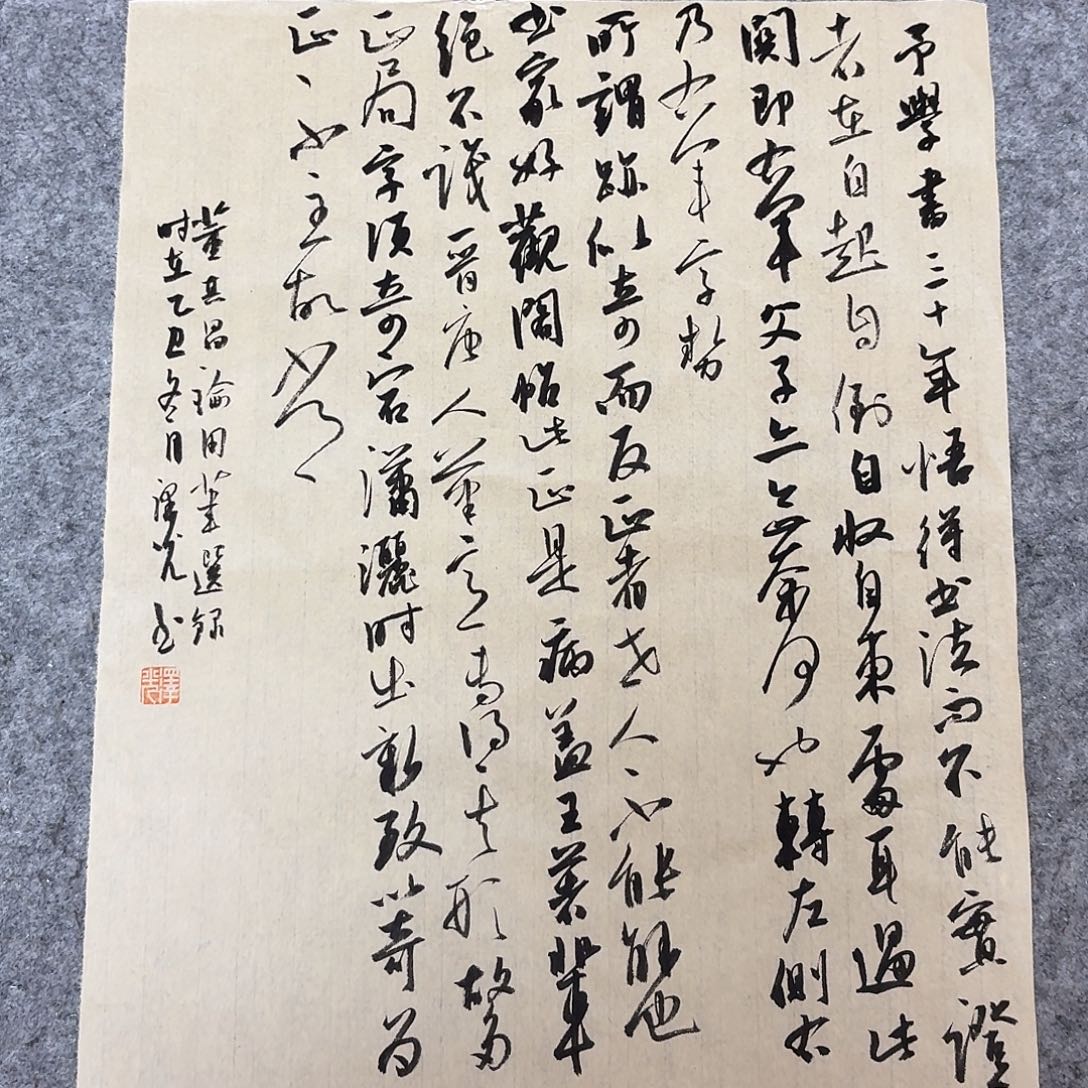 予學書三十年悟得书法而不能實證
者在自起自倒自収自束處耳過此
関即右軍父子亦無奈何也轉左側右
乃右军字勢
所謂跡似奇而反正者世人不能解也
书家好觀閣帖此正是病盖王著輩
绝不識晋唐人笔意专得其形故多
正局字須奇宕瀟灑时出新致以奇为
正不主故常
董其昌論用筆選録
时在乙巳冬月澤光书
澤光